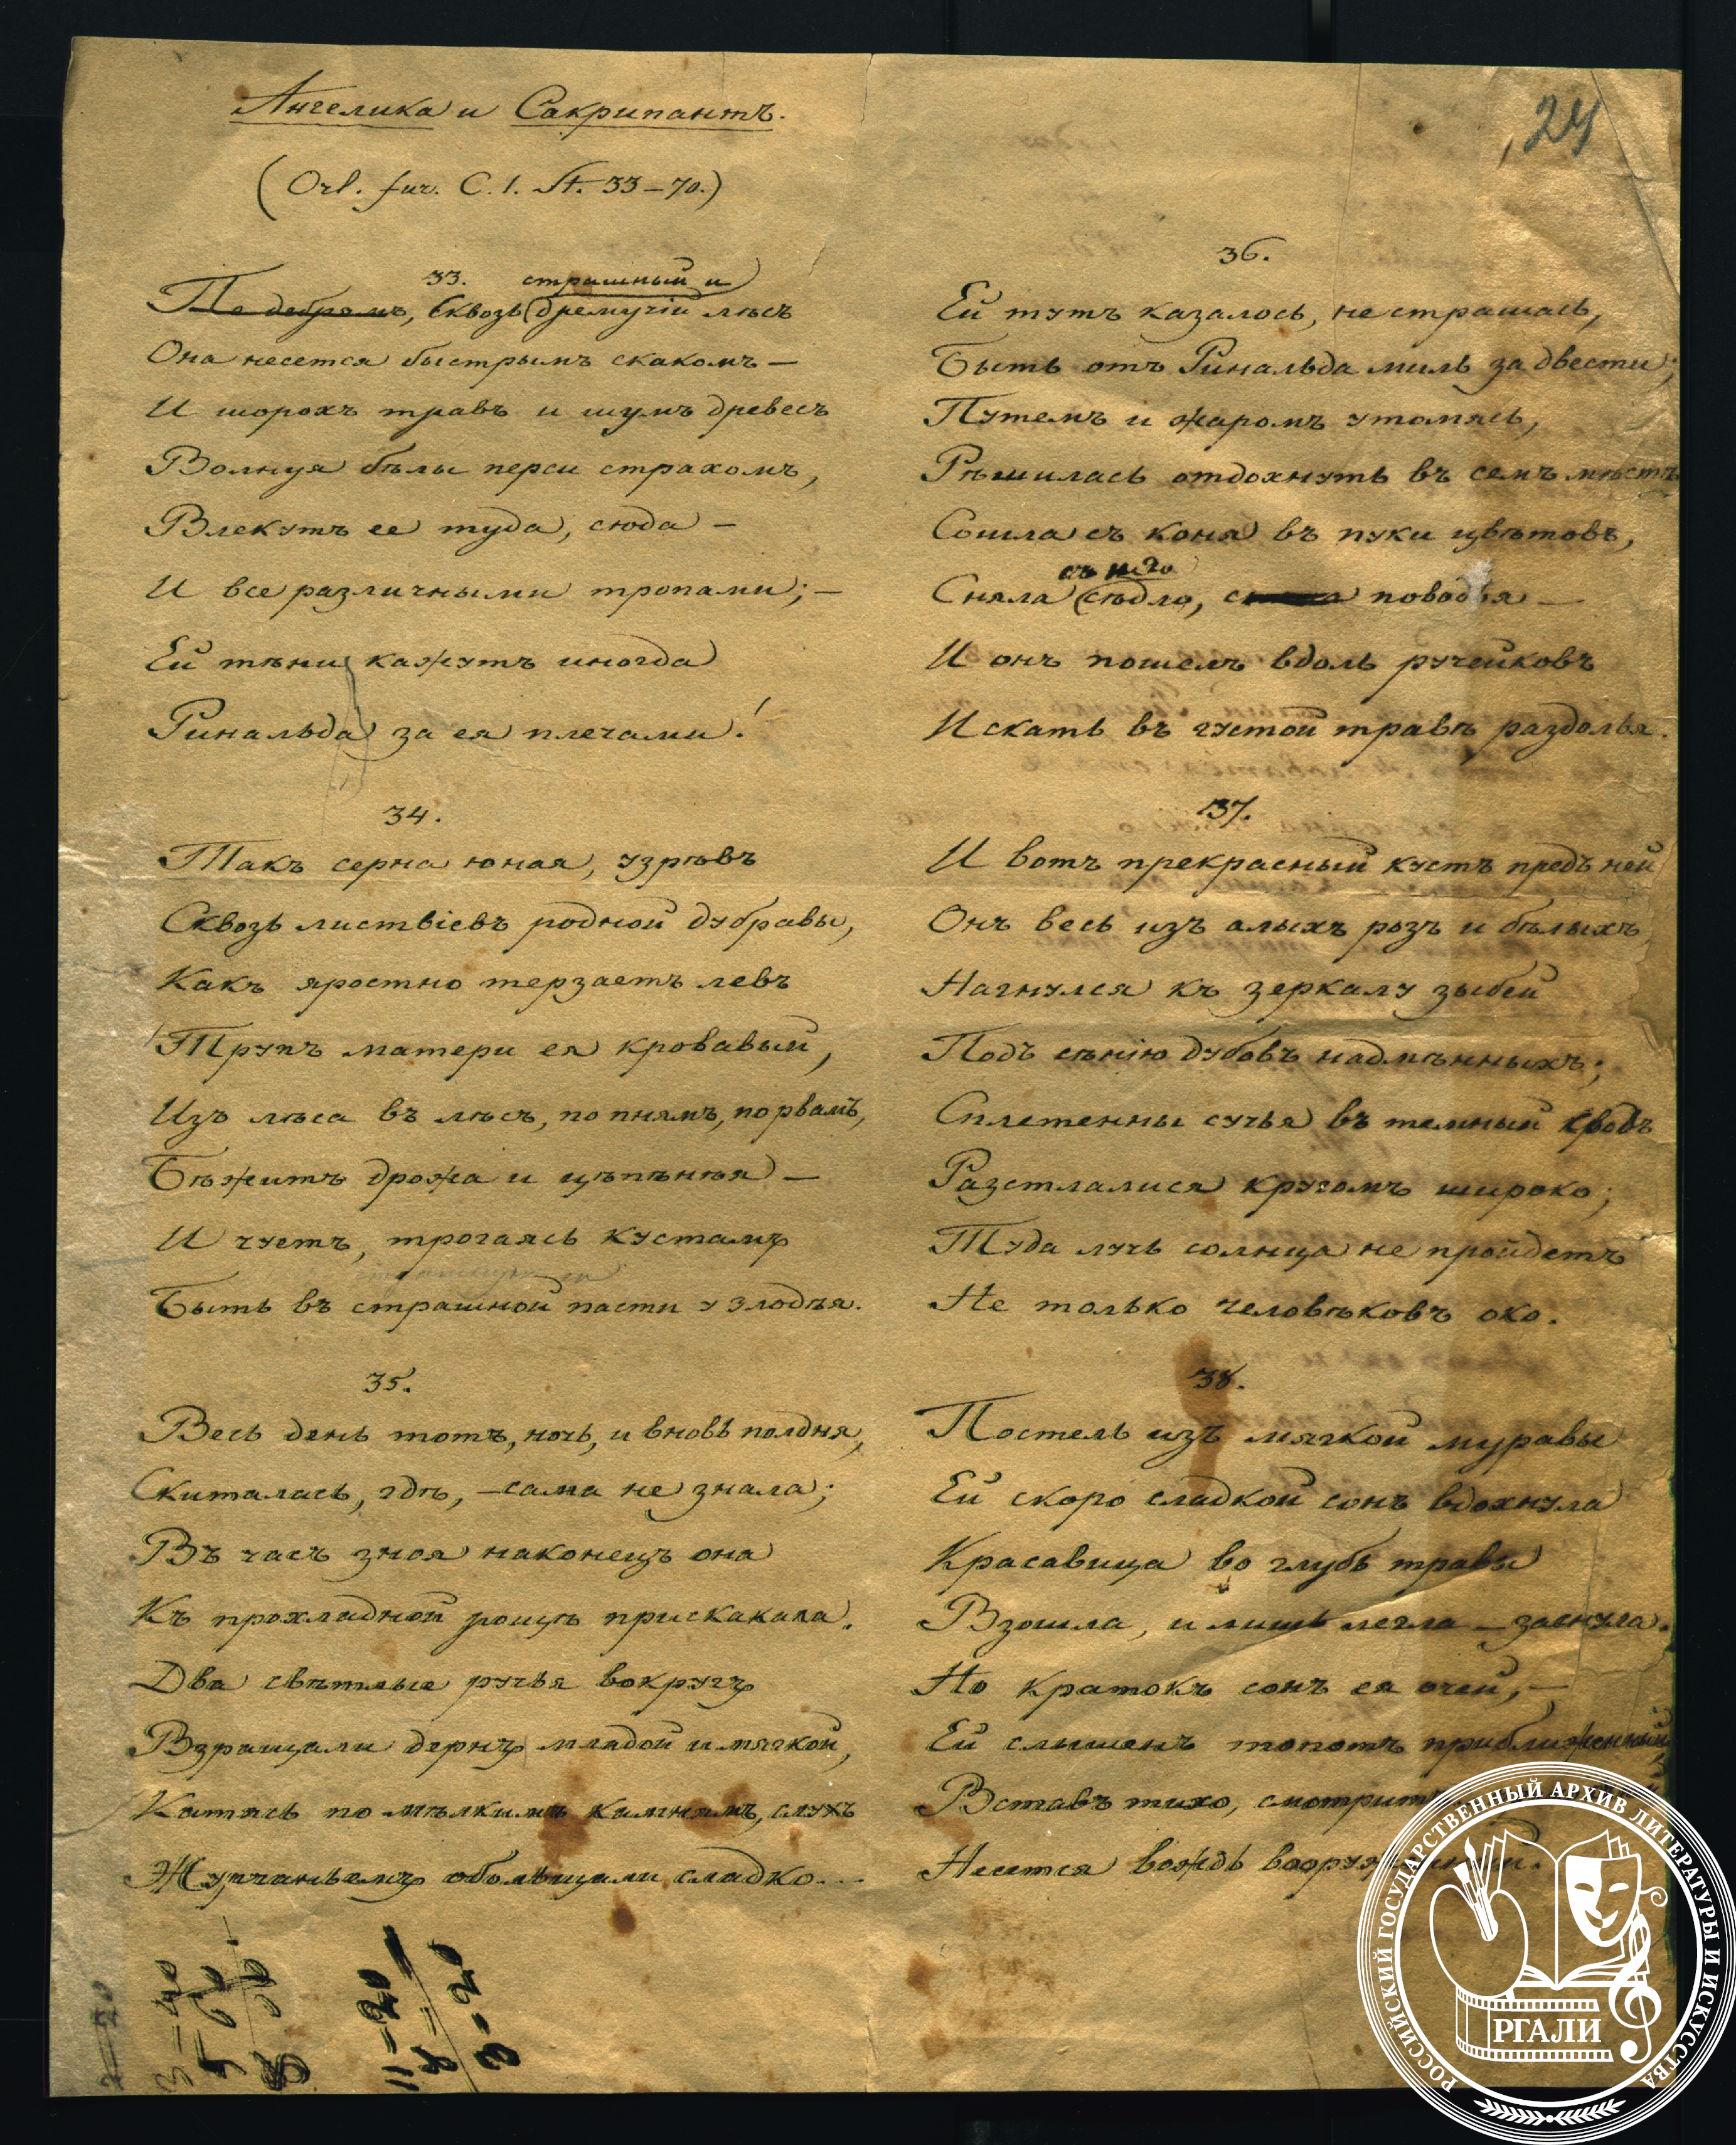 Ангелика и Сакрипантъ.
(Orl. fur. C. 1. St. 33–70.)
24
33.
страшный и
По дебрамъ, Сквозь дремучій лѣсъ
Она несется быстрымъ скакомъ —
И шорохъ травъ и шумъ древесъ
Волнуя бѣлы перси страхомъ,
Влекутъ ее туда, сюда —
И все различными тропами; —
Ей тѣни кажутъ иногда
Ринальда за ея плечами!
34.
Такъ серна юная, узрѣвъ
Сквозь листвіевъ родной дубравы,
Какъ яростно терзаетъ левъ
Трупъ матери ея кровавый,
Изъ лѣса въ лѣсъ, по пнямъ, по рвамъ,
Бѣжитъ дрожа и цѣпѣнѣя —
И чуетъ, трогаясь кустамъ
Быть въ страшной пасти у злодѣя.
35.
Весь день тотъ, ночь, и вновь полдня,
Скиталась, гдѣ, — сама не знала;
Въ часъ зноя наконецъ она
Къ прохладной рощѣ прискакала.
Два свѣтлые ручья вокругъ
Взращали дернъ младой и мягкой,
Катясь по мѣлкимъ камнямъ, слухъ
Журчаньемъ обольщали сладко...
36.
Ей тутъ казалось, не страшась,
Быть отъ Ринальда миль за двести;
Путемъ и жаромъ утомясь,
Рѣшилась отдохнуть въ семъ мѣстѣ
Сошла съ коня въ пуки цвѣтовъ,
съ него
Сняла сѣдло, поводья —
И онъ пошелъ вдоль ручейковъ
Искать въ густой травѣ раздолья.
37.
И вотъ прекрасный кустъ предъ ней
Онъ весь изъ алыхъ розъ и бѣлыхъ
Нагнулся къ зеркалу зыбей
Подъ сѣнію дубовъ надмѣнныхъ;
Сплетенны сучья въ темный сводъ
Разстлалися кругомъ широко;
Туда лучь солнца не пройдетъ
Не только человѣковъ око.
38.
Постель изъ мягкой муравы
Ей скоро сладкой сонъ вдохнула
Красавица во глубь травы
Взошла, и лишь легла — заснула.
Но кратокъ сонъ ея очей, —
Ей слышенъ топотъ приближенный
Вставъ тихо, смотритъ
Несется вождь вооруженный.
3=40
5 60
11=20
8=
3=20
РОССИЙСКИЙ ГОСУДАРСТВЕННЫЙ АРХИВ ЛИТЕРАТУРЫ И ИСКУССТВА
РГАЛИ